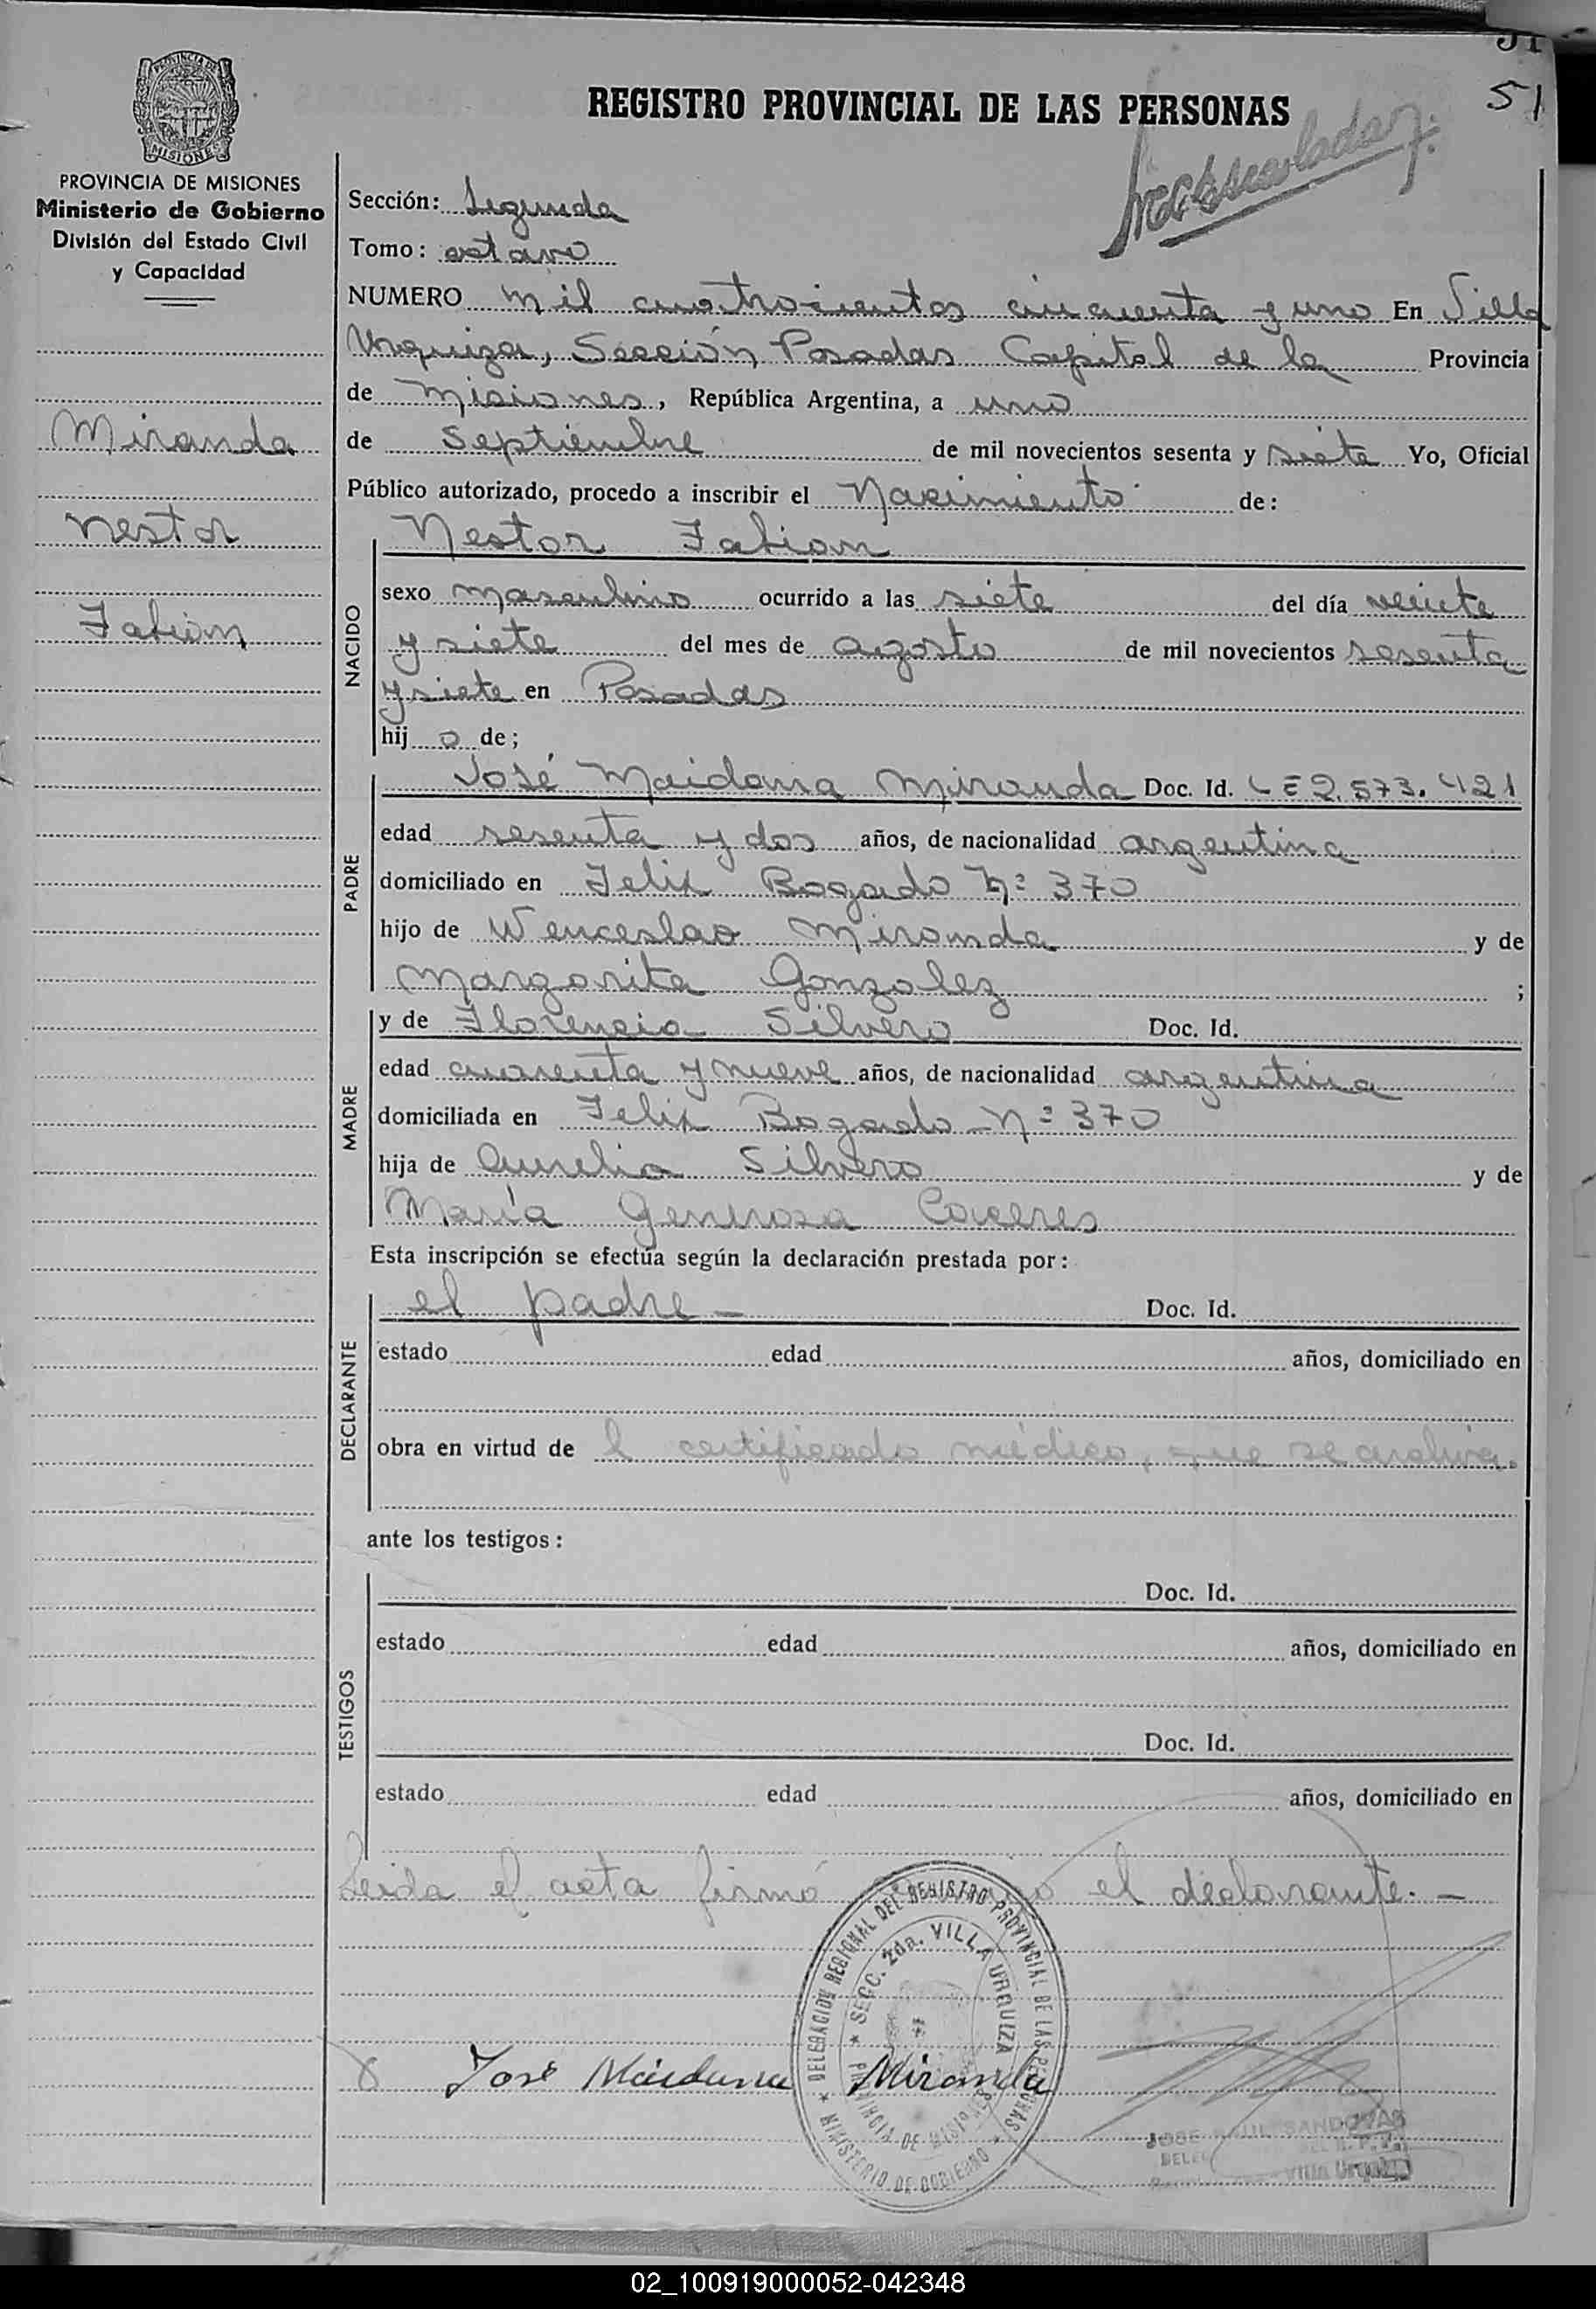 51
51
REGISTRO PROVINCIAL DE LAS PERSONAS
MISIONES
PROVINCIA DE MISIONES
Ministerio de Gobierno
División del Estado Civil
y Capacidad
Miranda
Nestor
Fabián
Sección: Segunda
Tomo: octavo
NUMERO mil cuatrocientos cincuenta y uno En Villa
Urquiza, Sección Posadas Capital de la Provincia
de Misiones, República Argentina, a uno
de Septiembre de mil novecientos sesenta y siete Yo, Oficial
Público autorizado, procedo a inscribir el Nacimiento de:
Nestor Fabian
NACIDO
sexo masculino ocurrido a las siete del día veinte
y siete del mes de agosto de mil novecientos sesenta
y siete en Posadas
hijo de;
PADRE
José Maidana Miranda Doc. Id. LE 2.573.421
edad sesenta y dos años, de nacionalidad argentina
domiciliado en Felix Bogado Nº 370
hijo de Wenceslao Miranda y de
Margarita Gonzalez ;
MADRE
y de Florencia Silvero Doc. Id.
edad cuarenta y nueve años, de nacionalidad argentina
domiciliada en Felix Bogado - Nº 370
hija de Aurelia Silvero y de
María Generosa Caceres
Esta inscripción se efectúa según la declaración prestada por:
DECLARANTE
el padre - Doc. Id.
estado edad años, domiciliado en
obra en virtud de l certificado médico, que se archiva.
ante los testigos:
TESTIGOS
Doc. Id.
estado edad años, domiciliado en
Doc. Id.
estado edad años, domiciliado en
Leida el acta firmó el declarante. -
DELEGACION REGIONAL DEL REGISTRO PROVINCIAL DE LAS PERSONAS
SECC. 2da. VILLA URQUIZA
PROVINCIA DE MISIONES
MINISTERIO DE GOBIERNO
José Maidana Miranda
JOSE RAUL SANDOVAS
Villa Urquiza
02_100919000052-042348